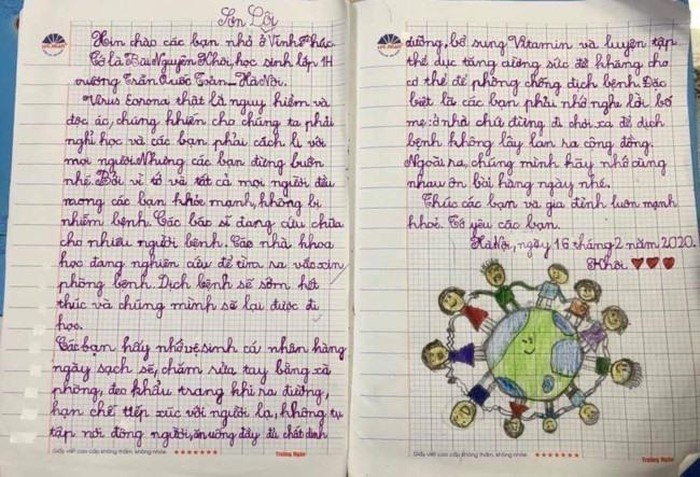 Sơn Lôi
Xin chào các bạn nhỏ ở Vĩnh Phúc
Tớ là Bùi Nguyên Khôi, học sinh lớp 1H
trường Trần Quốc Toản_Hà Nội.
Virus Corona thật là nguy hiểm và
độc ác, chúng khiến cho chúng ta phải
nghỉ học và các bạn phải cách li với
mọi người. Nhưng các bạn đừng buồn
nhé. Bởi vì tớ và tất cả mọi người đều
mong các bạn khỏe mạnh, không bị
nhiễm bệnh. Các bác sĩ đang cứu chữa
cho nhiều người bệnh. Các nhà khoa
học đang nghiên cứu để tìm ra vắc xin
phòng bệnh. Dịch bệnh sẽ sớm kết
thúc và chúng mình sẽ lại được đi
học.
Các bạn hãy nhớ vệ sinh cá nhân hàng
ngày sạch sẽ, chăm rửa tay bằng xà
phòng, đeo khẩu trang khi ra đường,
hạn chế tiếp xúc với người lạ, không tụ
tập nơi đông người, ăn uống đầy đủ chất dinh
Giấy viết cao cấp không thấm, không nhòe
Trường Ngân
dưỡng, bổ sung Vitamin và luyện tập
thể dục tăng cường sức đề kháng cho
cơ thể để phòng chống dịch bệnh. Đặc
biệt là các bạn phải nhớ nghe lời bố
mẹ: ở nhà chứ đừng đi chơi xa để dịch
bệnh không lây lan ra cộng đồng.
Ngoài ra, chúng mình hãy nhớ cùng
nhau ôn bài hàng ngày nhé.
Chúc các bạn và gia đình luôn mạnh
khoẻ. Tớ yêu các bạn.
Hà Nội, ngày 16 tháng 2 năm 2020.
Khôi
Giấy viết cao cấp không thấm, không nhòe
Trường Ngân